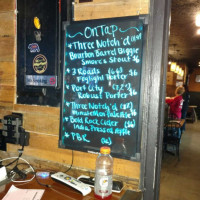 On Tap
Three Notch'd
Bourbon Barrel Biggie
Smores Stout
3 Roads
Foylight Porter
Port City
Robust Porter
Three Notch'd
Minute Man Pale Ale
Bold Rock Cider
India Pressed Apple
PBR